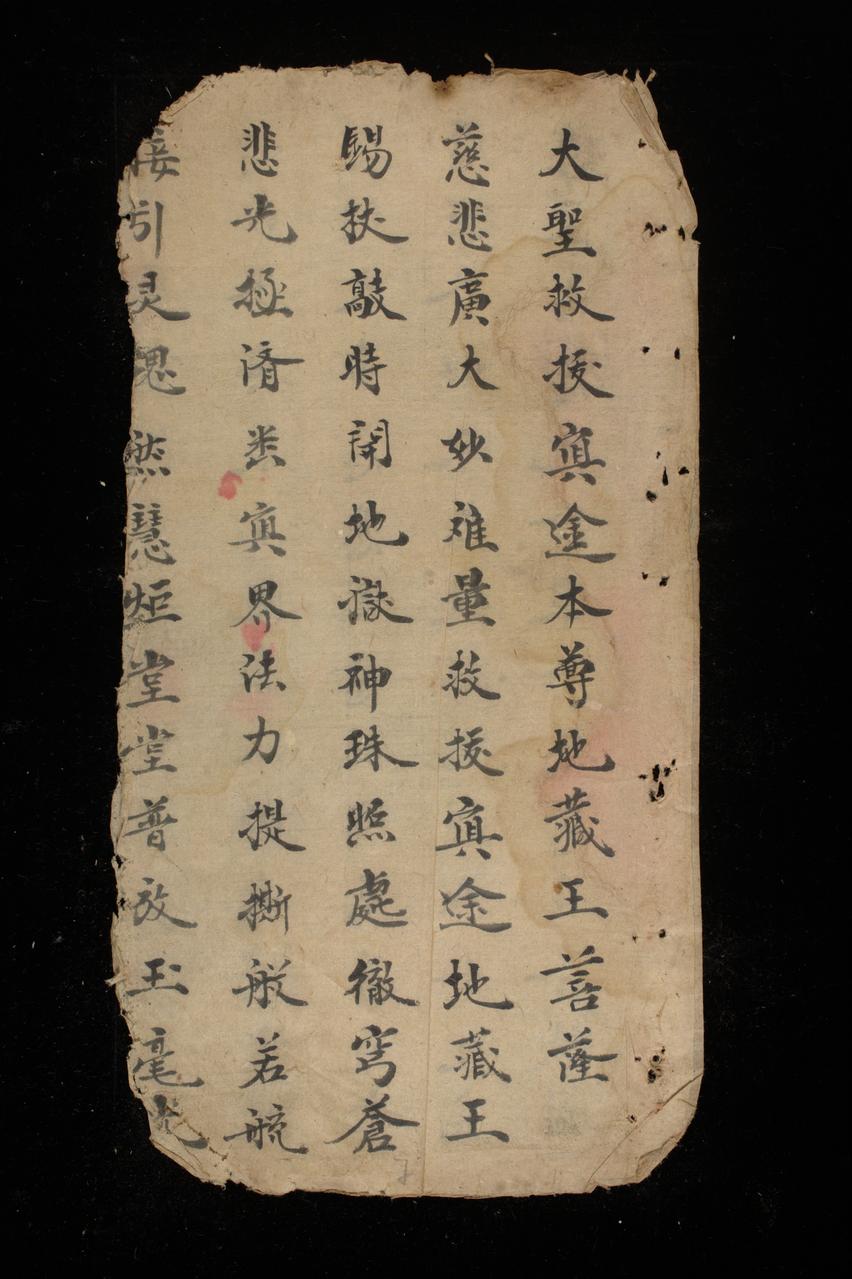 大聖救拔寘途本尊地藏王菩薩
慈悲廣大妙难量救拔寘途地藏王
錫杖敲時開地獄神珠照處徹穹蒼
悲光拯濟类寘界法力提撕般若航
接引灵鬼然慧炬堂堂普放玉毫光